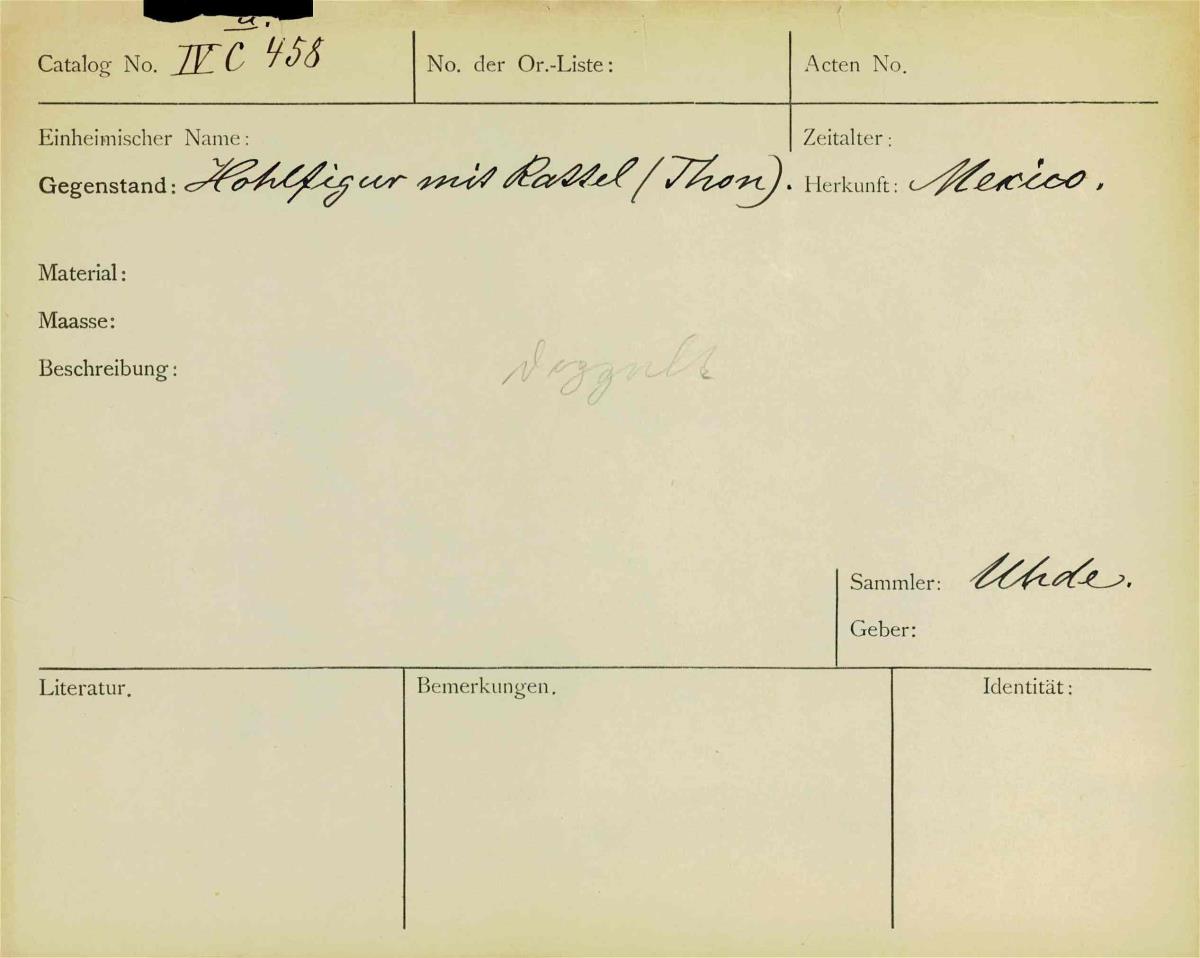 u.
Catalog No. IV C 458
No. der Or.-Liste:
Acten No.
Einheimischer Name:
Zeitalter:
Gegenstand: Hohlfigur mit Rassel (Thon).
Herkunft: Mexico.
Material:
Maasse:
Beschreibung:
Sammler: Uhde.
Geber:
Literatur.
Bemerkungen.
Identität: